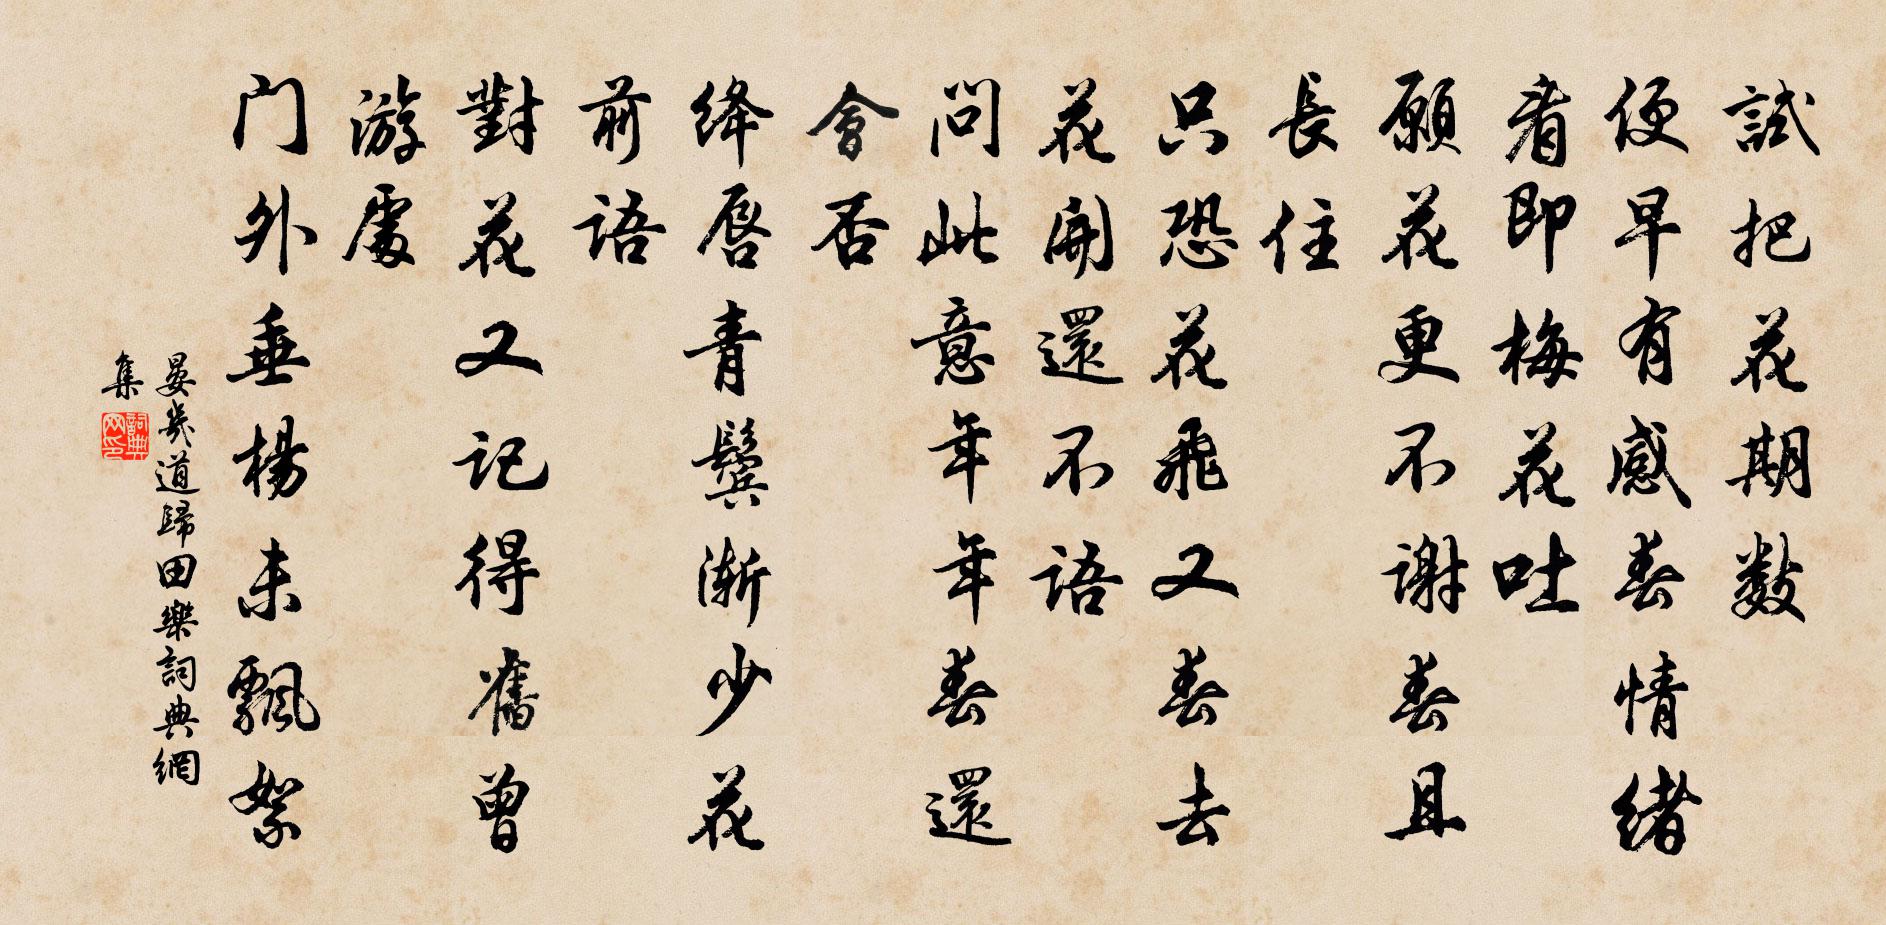 試把花期数
便早有感春情緒
看即梅花吐
願花更不谢春且
長住
只恐花飛又春去
花開還不语
問此意年年春還
會否
绛唇青鬓渐少花
前语
對花又记得舊曾
游處
门外垂楊未飄絮
晏幾道歸田樂詞典網
集
詞典
网印